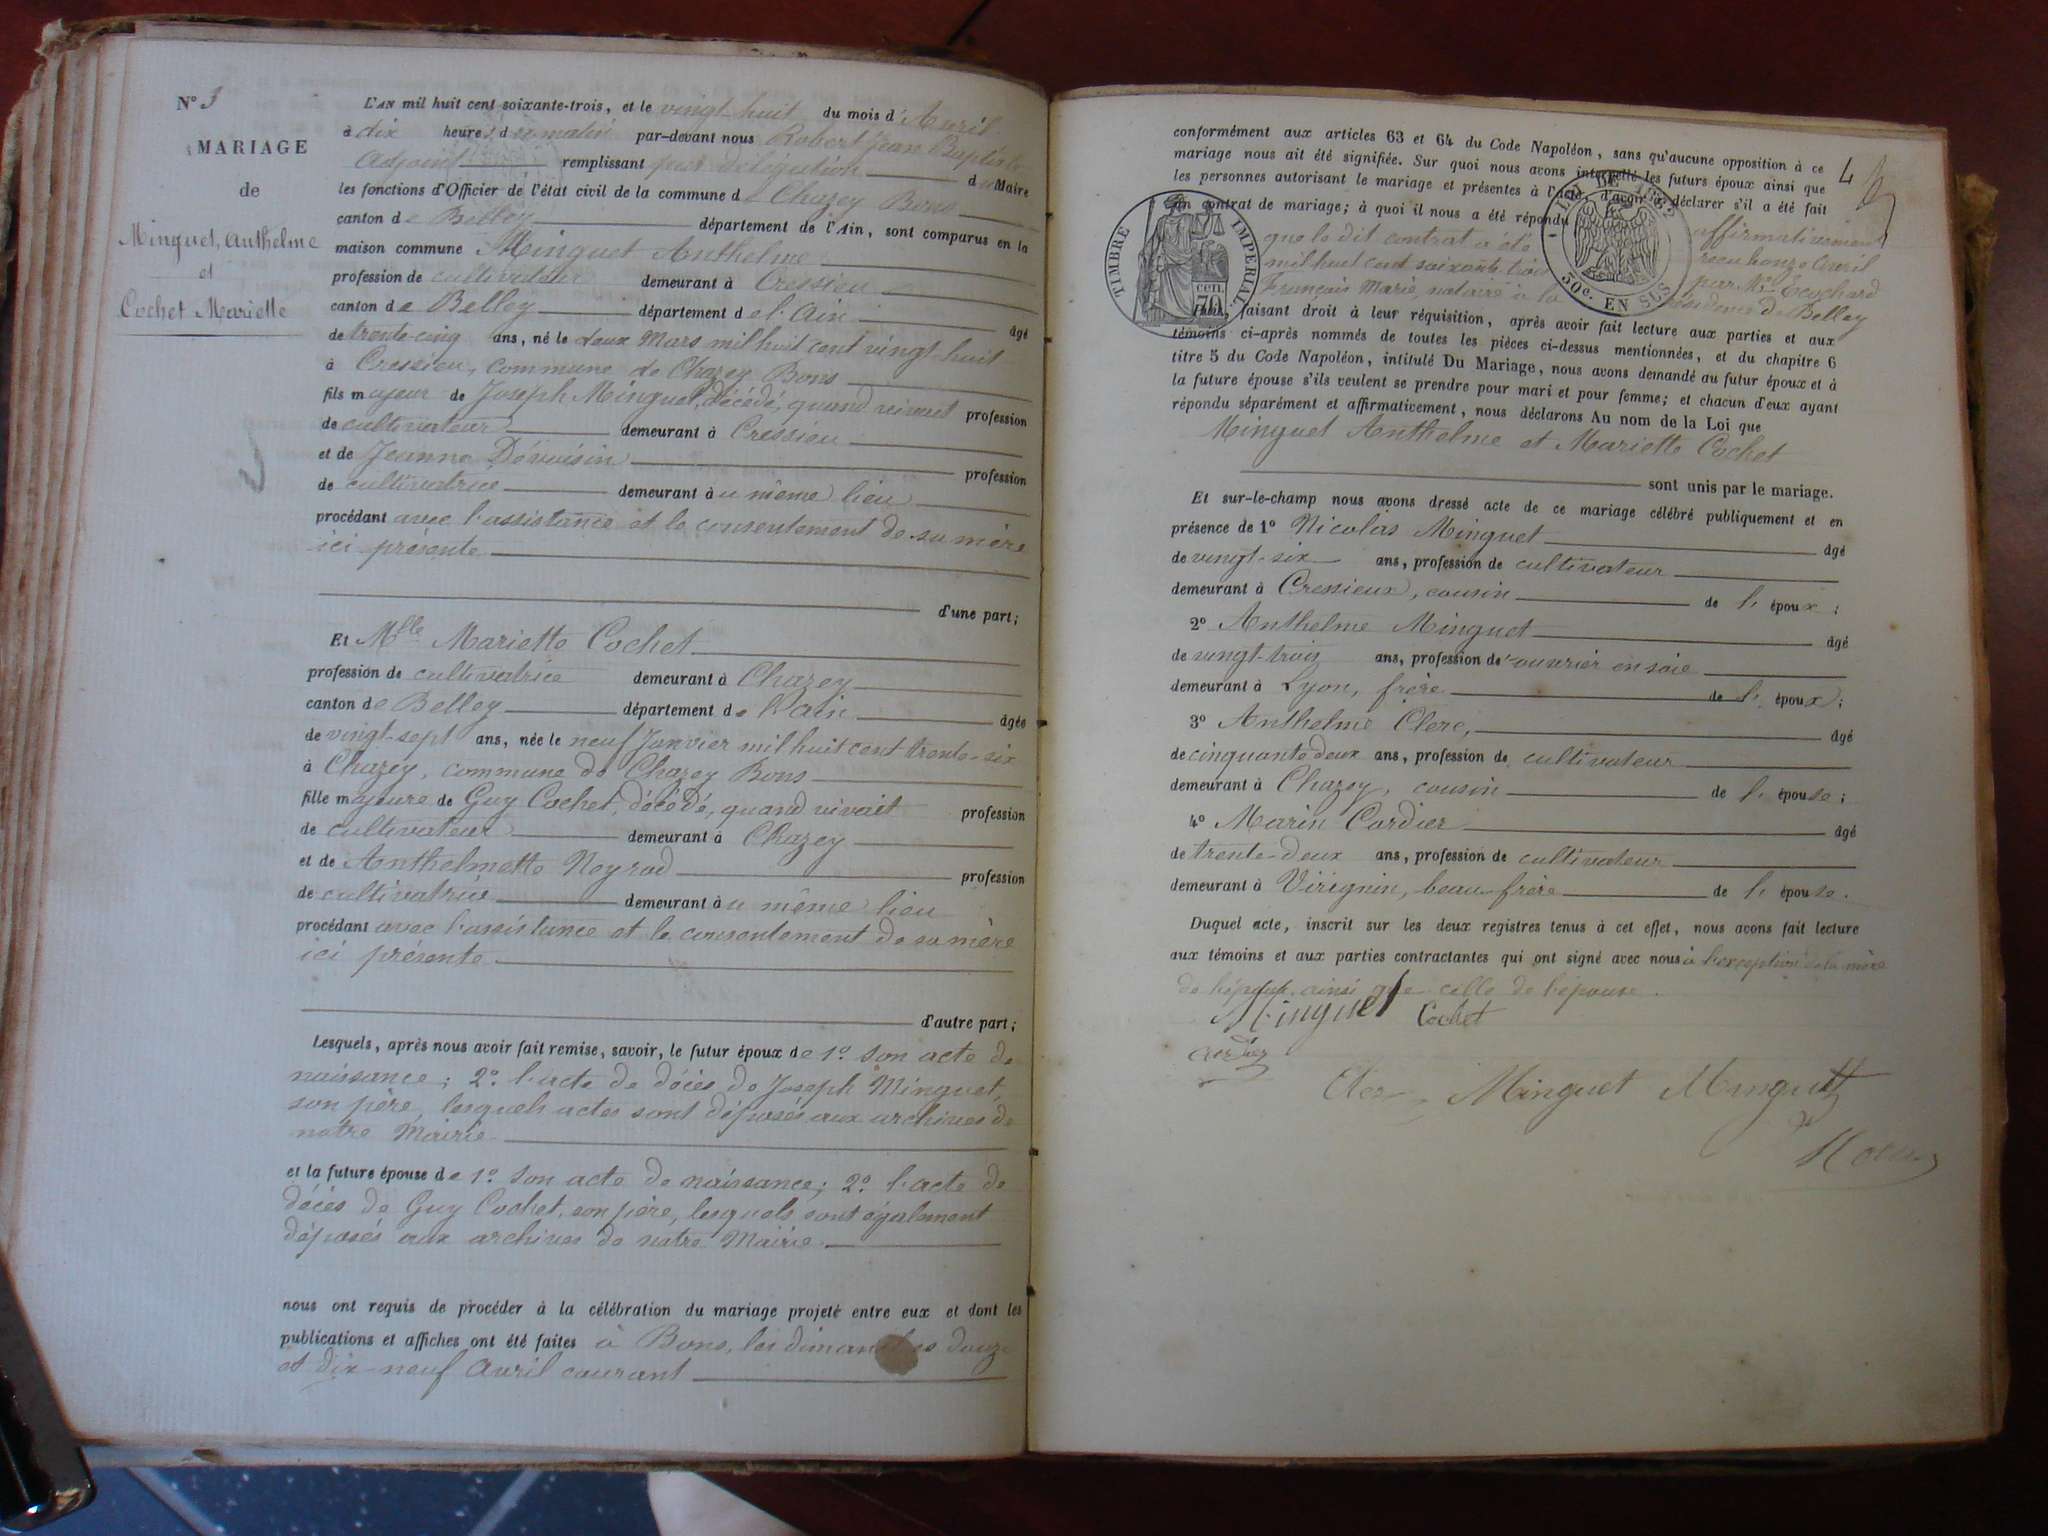 N° 3
MARIAGE
de
Minguet, Anthelme
et
Cochet Mariette
L'AN mil huit cent soixante-trois, et le vingt-huit du mois d'Avril
à dix heures du matin par-devant nous Robert Jean Baptiste
Adjoint remplissant par délégation du Maire
les fonctions d'Officier de l'état civil de la commune de Chazey Bons
canton de Belley département de l'Ain, sont comparus en la
maison commune Minguet Anthelme
profession de cultivateur demeurant à Cressieu
canton de Belley département de l'Ain âgé
de trente-cinq ans, né le deux Mars mil huit cent vingt-huit
à Cressieu, commune de Chazey Bons
fils majeur de Joseph Minguet, décédé, quand vivait profession
de cultivateur demeurant à Cressieu
et de Jeanne Dévoisin profession
de cultivatrice demeurant au même lieu
procédant avec l'assistance et le consentement de sa mère
ici présente
d'une part;
Et Mlle Mariette Cochet
profession de cultivatrice demeurant à Chazey
canton de Belley département de l'Ain âgée
de vingt-sept ans, née le neuf Janvier mil huit cent trente-six
à Chazey, commune de Chazey Bons
fille majeure de Guy Cochet, décédé, quand vivait profession
de cultivateur demeurant à Chazey
et de Anthelmette Neyrod profession
de cultivatrice demeurant au même lieu
procédant avec l'assistance et le consentement de sa mère
ici présente
d'autre part;
Lesquels, après nous avoir fait remise, savoir, le futur époux de 1° son acte de
naissance; 2° l'acte de décès de Joseph Minguet,
son père, lesquels actes sont déposés aux archives de
notre Mairie
et la future épouse de 1° son acte de naissance; 2° l'acte de
décès de Guy Cochet, son père, lesquels sont également
déposés aux archives de notre Mairie
nous ont requis de procéder à la célébration du mariage projeté entre eux et dont les
publications et affiches ont été faites à Bons, les dimanches douze
et dix-neuf Avril courant
4
conformément aux articles 63 et 64 du Code Napoléon, sans qu'aucune opposition à ce
mariage nous ait été signifiée. Sur quoi nous avons interpellé les futurs époux ainsi que
les personnes autorisant le mariage et présentes à l'acte d'avoir à déclarer s'il a été fait
un contrat de mariage; à quoi il nous a été répondu affirmativement
que le dit contrat a été reçu onze Avril
mil huit cent soixante-trois par Me Trochard
François Marie, notaire à la résidence de Belley
TIMBRE IMPERIAL
70 cen.
LOI DE 1862
50c. EN SUS
Nous, faisant droit à leur réquisition, après avoir fait lecture aux parties et aux
témoins ci-après nommés de toutes les pièces ci-dessus mentionnées, et du chapitre 6
titre 5 du Code Napoléon, intitulé Du Mariage, nous avons demandé au futur époux et à
la future épouse s'ils veulent se prendre pour mari et pour femme; et chacun d'eux ayant
répondu séparément et affirmativement, nous déclarons Au nom de la Loi que
Minguet Anthelme et Mariette Cochet
sont unis par le mariage.
Et sur-le-champ nous avons dressé acte de ce mariage célébré publiquement et en
présence de 1° Nicolas Minguet âgé
de vingt-six ans, profession de cultivateur
demeurant à Cressieux, cousin de l'époux;
2° Anthelme Minguet âgé
de vingt-trois ans, profession d'ouvrier en soie
demeurant à Lyon, frère de l'époux;
3° Anthelme Clerc, âgé
de cinquante deux ans, profession de cultivateur
demeurant à Chazey, cousin de l'épouse;
4° Marin Cordier âgé
de trente-deux ans, profession de cultivateur
demeurant à Virignin, beau-frère de l'épouse.
Duquel acte, inscrit sur les deux registres tenus à cet effet, nous avons fait lecture
aux témoins et aux parties contractantes qui ont signé avec nous à l'exception de la mère
de l'époux ainsi que celle de l'épouse.
Minguet Cochet
cordier
Clerc Minguet Minguet